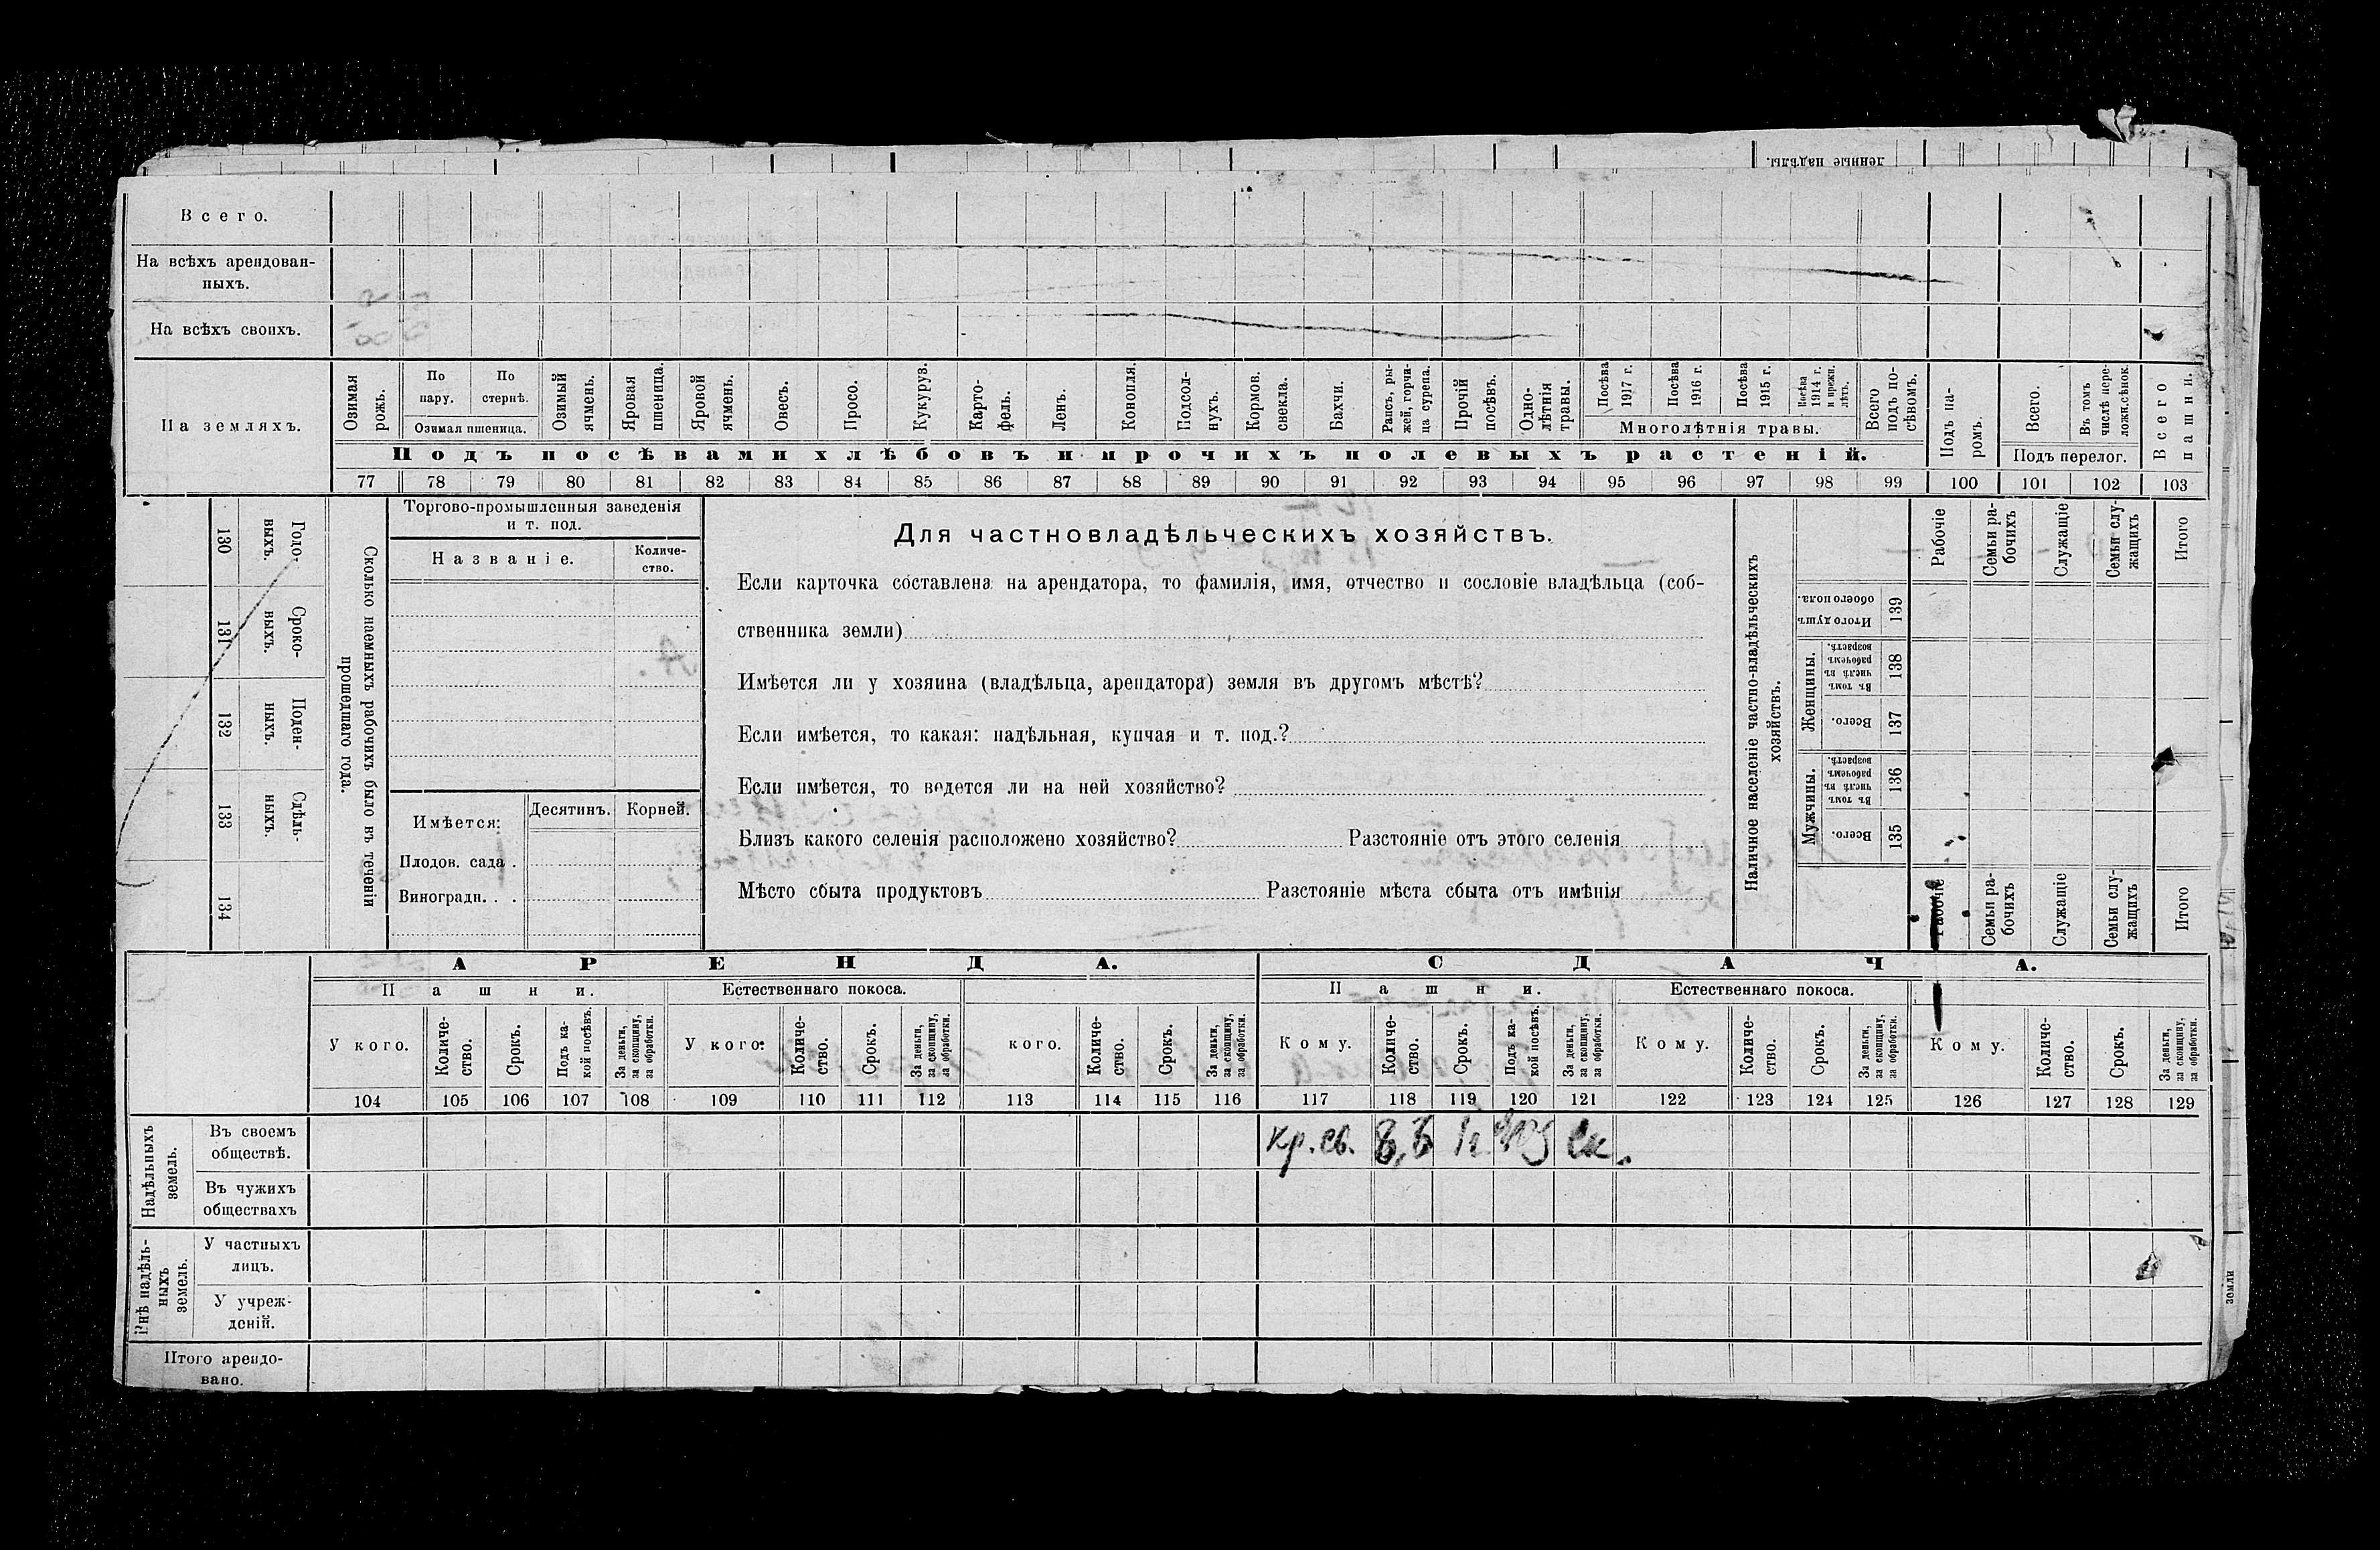 ленные надѣлы.
Всего.
На всѣхъ арендован-
ныхъ.
На всѣхъ своихъ.
На земляхъ.
Озимая рожь.
По пару.
По стернѣ.
Озимая пшеница.
Озимый ячмень.
Яровая пшеница.
Яровой ячмень.
Овесъ.
Просо.
Кукуруз.
Карто-
фель.
Ленъ.
Конопля.
Подсол-
нухъ.
Кормов.
свекла.
Бахчи.
Рапсъ, ры-
жей, горчи-
ца сурепа.
Прочій
посѣвъ.
Одно-
лѣтнія
травы.
Посѣва
1917 г.
Посѣва
1916 г.
Посѣва
1915 г.
Посѣва
1914 г.
и прежн.
лѣтъ.
Многолѣтнія травы.
Всего
подъ по-
сѣвомъ.
Подъ па-
ромъ.
Всего.
Въ томъ
числѣ пере-
ложн.сѣнок.
Подъ перелог.
Всего
пашни.
Подъ посѣвами хлѣбовъ и прочихъ полевыхъ растеній.
77 78 79 80 81 82 83 84 85 86 87 88 89 90 91 92 93 94 95 96 97 98 99 100 101 102 103
Сколько наемныхъ рабочихъ было въ теченіи
прошедшаго года.
Годо-
выхъ.
130
Сроко-
выхъ.
131
Поден-
ныхъ.
132
Сдѣль-
ныхъ.
133
134
Торгово-промышленныя заведенія
и т. под.
Названіе.
Количе-
ство.
Имѣется:
Десятинъ.
Корней.
Плодов. сада .
Виноградн. . .
Для частновладѣльческихъ хозяйствъ.
Если карточка составлена на арендатора, то фамилія, имя, отчество и сословіе владѣльца (соб-
ственника земли)
Имѣется ли у хозяина (владѣльца, арендатора) земля въ другомъ мѣстѣ?
Если имѣется, то какая: надѣльная, купчая и т. под.?
Если имѣется, то ведется ли на ней хозяйство?
Близъ какого селенія расположено хозяйство? Разстояніе отъ этого селенія
Мѣсто сбыта продуктовъ Разстояніе мѣста сбыта отъ имѣнія
Наличное населеніе частно-владѣльческихъ
хозяйствъ.
Рабочіе
Семьи ра-
бочихъ
Служащіе
Семьи слу-
жащихъ
Итого
Итого душъ
обоего пола.
139
Женщины.
Въ томъ
числѣ въ
рабочемъ
возрастѣ.
138
Всего.
137
Мужчины.
Въ томъ
числѣ въ
рабочемъ
возрастѣ.
136
Всего.
135
Рабочіе
Семьи ра-
бочихъ
Служащіе
Семьи слу-
жащихъ
Итого
АРЕНДА.
СДАЧА.
Пашни.
Естественнаго покоса.
Пашни.
Естественнаго покоса.
У кого.
Количе-
ство.
Срокъ.
Подъ ка-
кой посѣвъ.
За деньги,
за скопщину,
за обработки.
У кого:
Количе-
ство.
Срокъ.
За деньги,
за скопщину,
за обработки.
кого.
Количе-
ство.
Срокъ.
За деньги,
за скопщину,
за обработки.
Кому.
Количе-
ство.
Срокъ.
Подъ ка-
кой посѣвъ.
За деньги,
за скопщину,
за обработки.
Кому.
Количе-
ство.
Срокъ.
За деньги,
за скопщину,
за обработки.
Кому.
Количе-
ство.
Срокъ.
За деньги,
за скопщину,
за обработки.
104 105 106 107 108 109 110 111 112 113 114 115 116 117 118 119 120 121 122 123 124 125 126 127 128 129
Надѣльныхъ
земель.
Въ своемъ
обществѣ.
кр. св. ск.
Въ чужихъ
обществахъ
Внѣ надѣль-
ныхъ
земель.
У частныхъ
лицъ.
У учреж-
деній.
Итого арендо-
вано.
земли